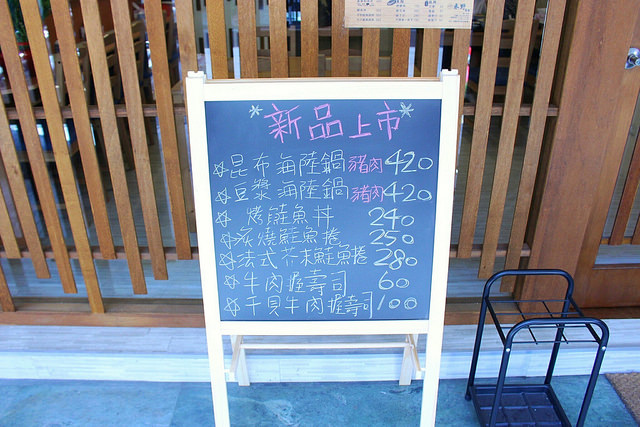 *新品上市*
☆昆布海陸鍋豬肉420
☆豆漿海陸鍋豬肉420
☆烤鮭魚丼240
☆炙燒鮭魚捲250
☆法式芥末鮭魚捲280
☆牛肉握壽司60
☆干貝牛肉握壽司100